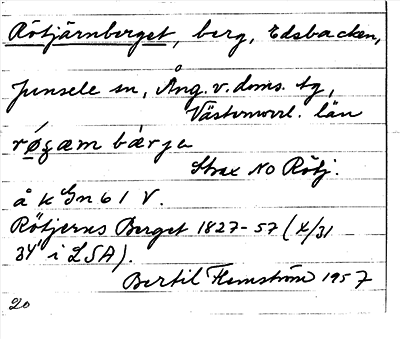 Rötjärnberget, berg, Edsbacken,
Junsele sn, Ång. v. doms. tg,
Västernorrl. län
Strax NO Rötj.
å k Gn 61 V.
Rötjerns Berget 1827-57 (X/31
34 i LSA).
Bertil Flemström 1957
20